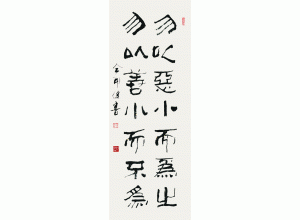 勿以惡小而為之
勿以善小而不為